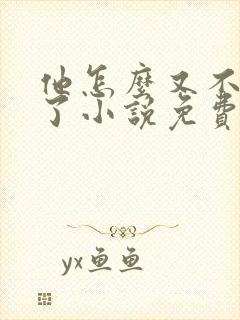 他怎麼又不
了小說免費
yx鱼鱼